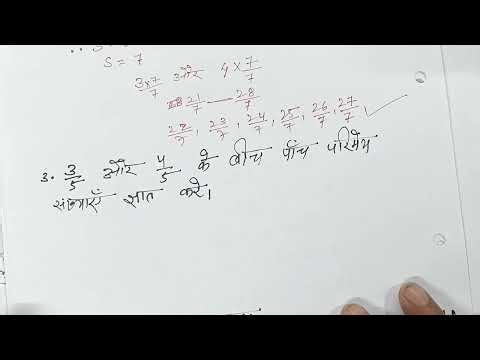 S = 7
3×7/7 और 4×7/7
21/7 — 28/7
22/7, 23/7, 24/7, 25/7, 26/7, 27/7
3. 3/5 और 4/5 के बीच पाँच परिमेय
संख्याएँ ज्ञात करें।